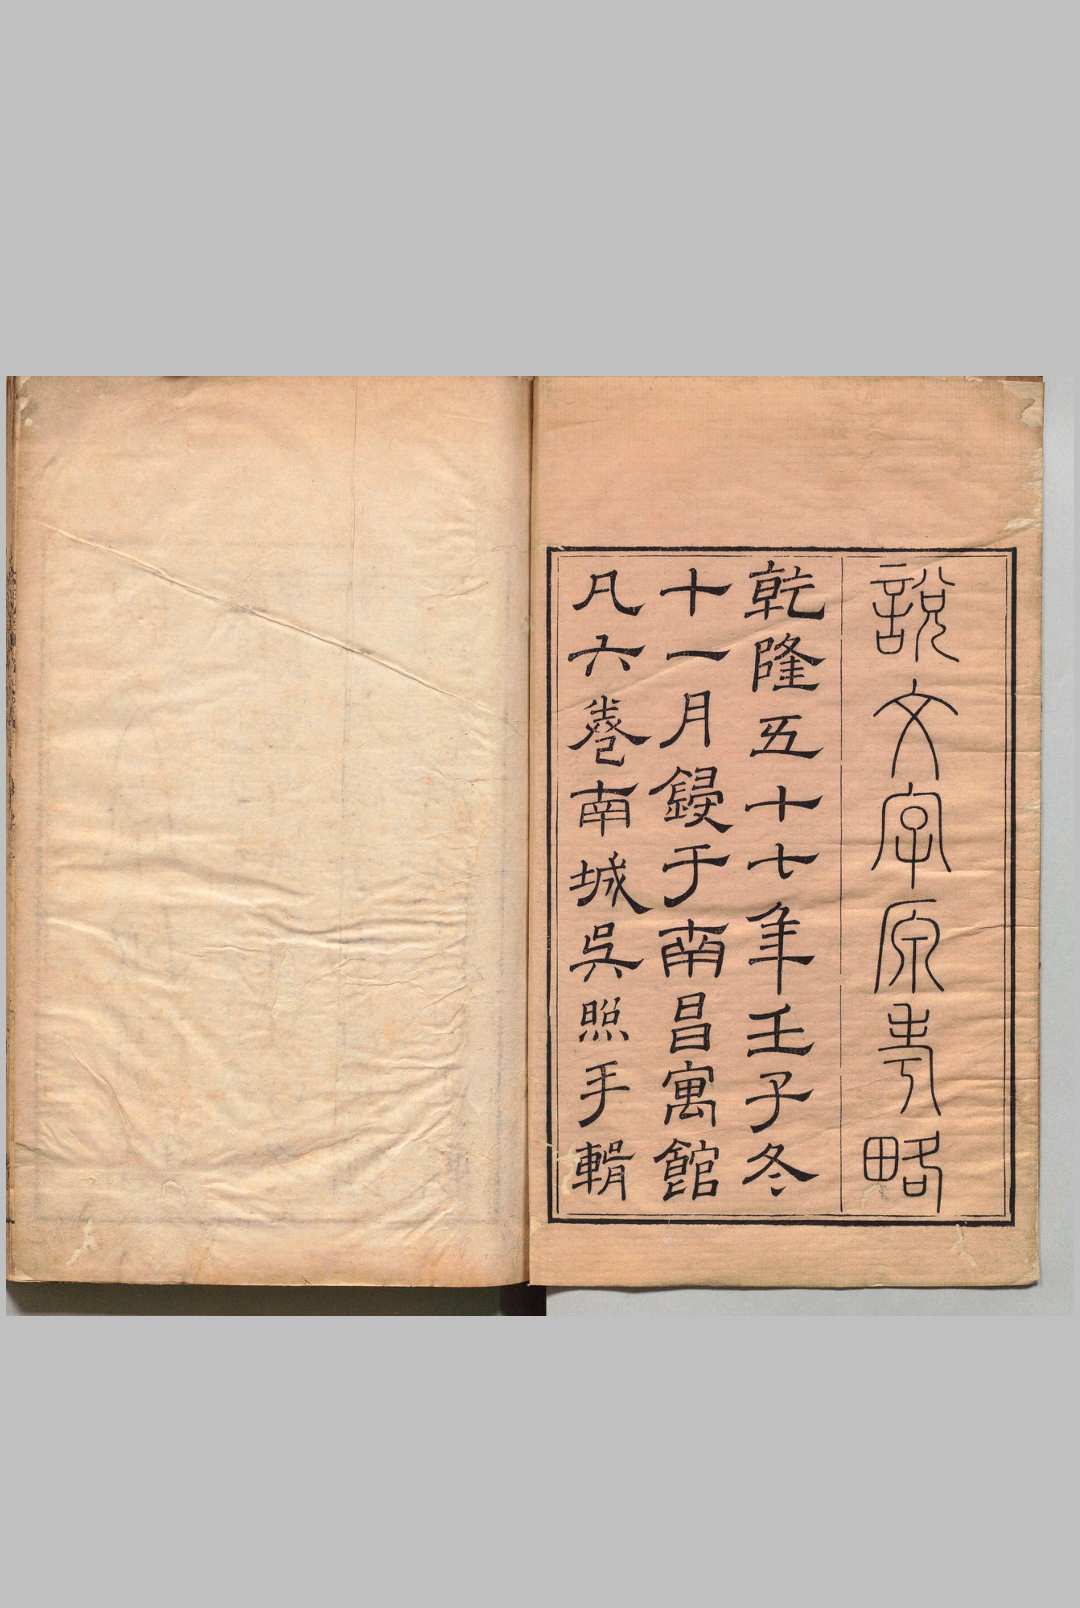 說文字原考略
乾隆五十七年壬子冬
十一月鋟于南昌寓館
凡六卷南城吳照手輯